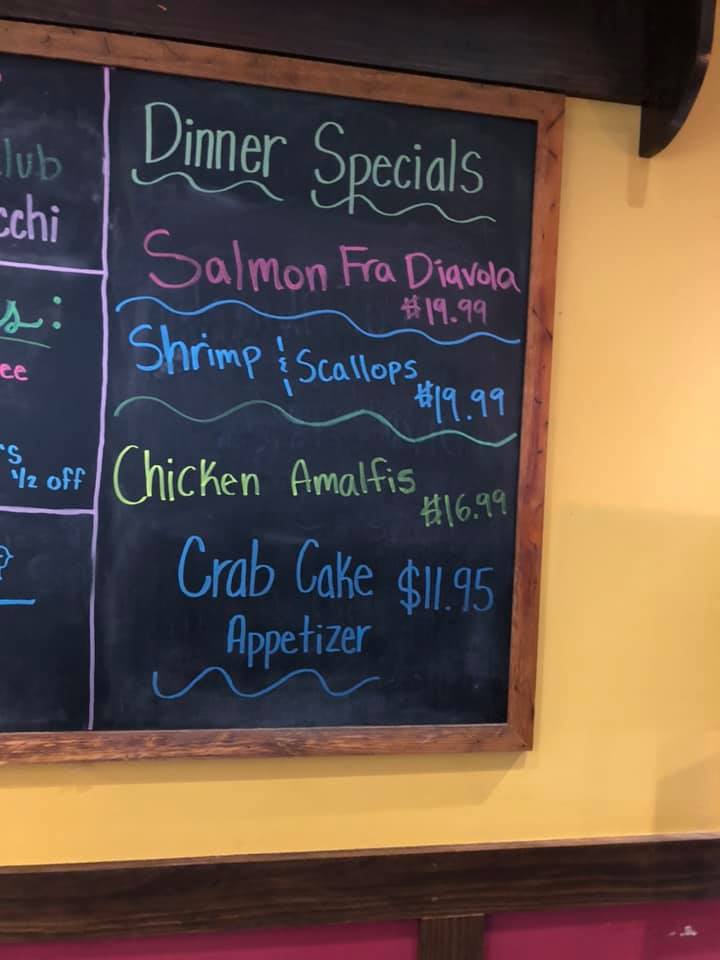 lub
cchi
s:
ee
's
1/2 off
Dinner Specials
Salmon Fra Diavola
$19.99
Shrimp & Scallops
$19.99
Chicken Amalfis
$16.99
Crab Cake $11.95
Appetizer